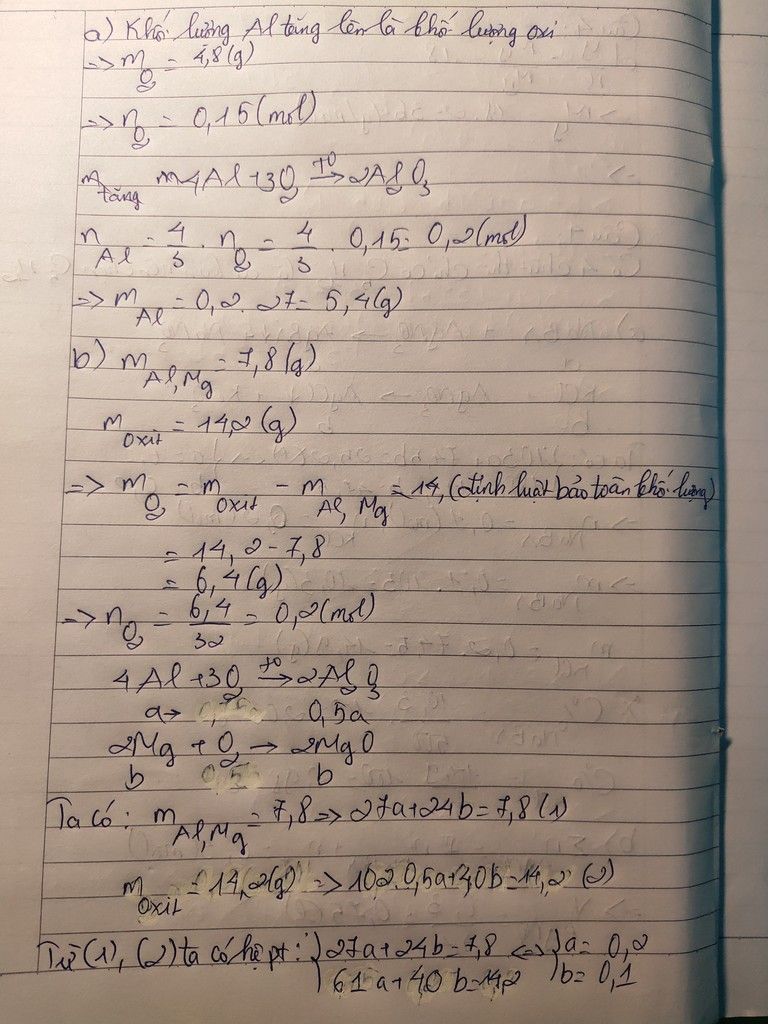 a) Khối lượng Al tăng lên là khối lượng oxi
=> m_O₂ = 4,8(g)
=> n_O₂ = 0,15(mol)
m_tăng m 4Al + 3O₂ →(t°) 2Al₂O₃
n_Al = 4/3 . n_O₂ = 4/3 . 0,15 = 0,2(mol)
=> m_Al = 0,2 . 27 = 5,4(g)
b) m_Al,Mg = 7,8(g)
m_oxit = 14,2(g)
=> m_O₂ = m_oxit - m_Al,Mg = 14, (định luật bảo toàn khối lượng)
= 14,2 - 7,8
= 6,4(g)
=> n_O₂ = 6,4/32 = 0,2(mol)
4Al + 3O₂ →(t°) 2Al₂O₃
a → 0,5a
2Mg + O₂ → 2MgO
b 0,5 b
Ta có: m_Al,Mg = 7,8 => 27a + 24b = 7,8 (1)
m_oxit = 14,2(g) => 102.0,5a + 40b = 14,2 (2)
Từ (1), (2) ta có hệ pt: { 27a + 24b = 7,8 <=> { a = 0,2
61a + 40b = 14,2 b = 0,1